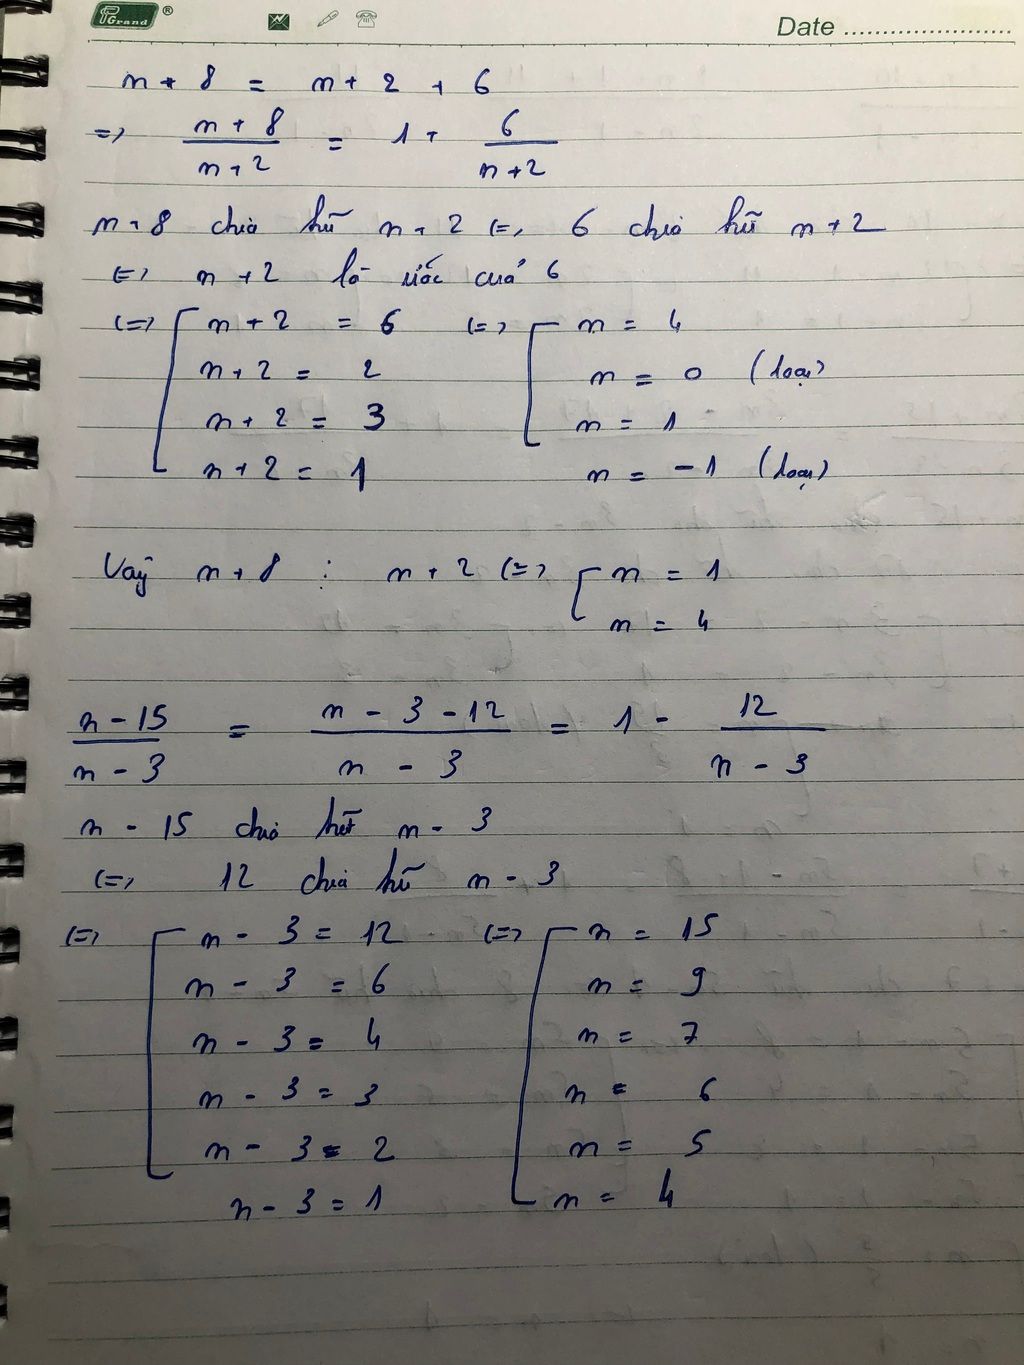 Grand ® Date
n + 8 = n + 2 + 6
=> n + 8 / n + 2 = 1 + 6 / n + 2
n + 8 chia hết n + 2 <=> 6 chia hết n + 2
<=> n + 2 là ước của 6
<=> [ n + 2 = 6 <=> [ n = 4
n + 2 = 2 n = 0 (loại)
n + 2 = 3 n = 1
n + 2 = 1 n = -1 (loại)
Vậy n + 8 ⋮ n + 2 <=> [ n = 1
n = 4
n - 15 / n - 3 = n - 3 - 12 / n - 3 = 1 - 12 / n - 3
n - 15 chia hết n - 3
<=> 12 chia hết n - 3
<=> [ n - 3 = 12 <=> [ n = 15
n - 3 = 6 n = 9
n - 3 = 4 n = 7
n - 3 = 3 n = 6
n - 3 = 2 n = 5
n - 3 = 1 n = 4